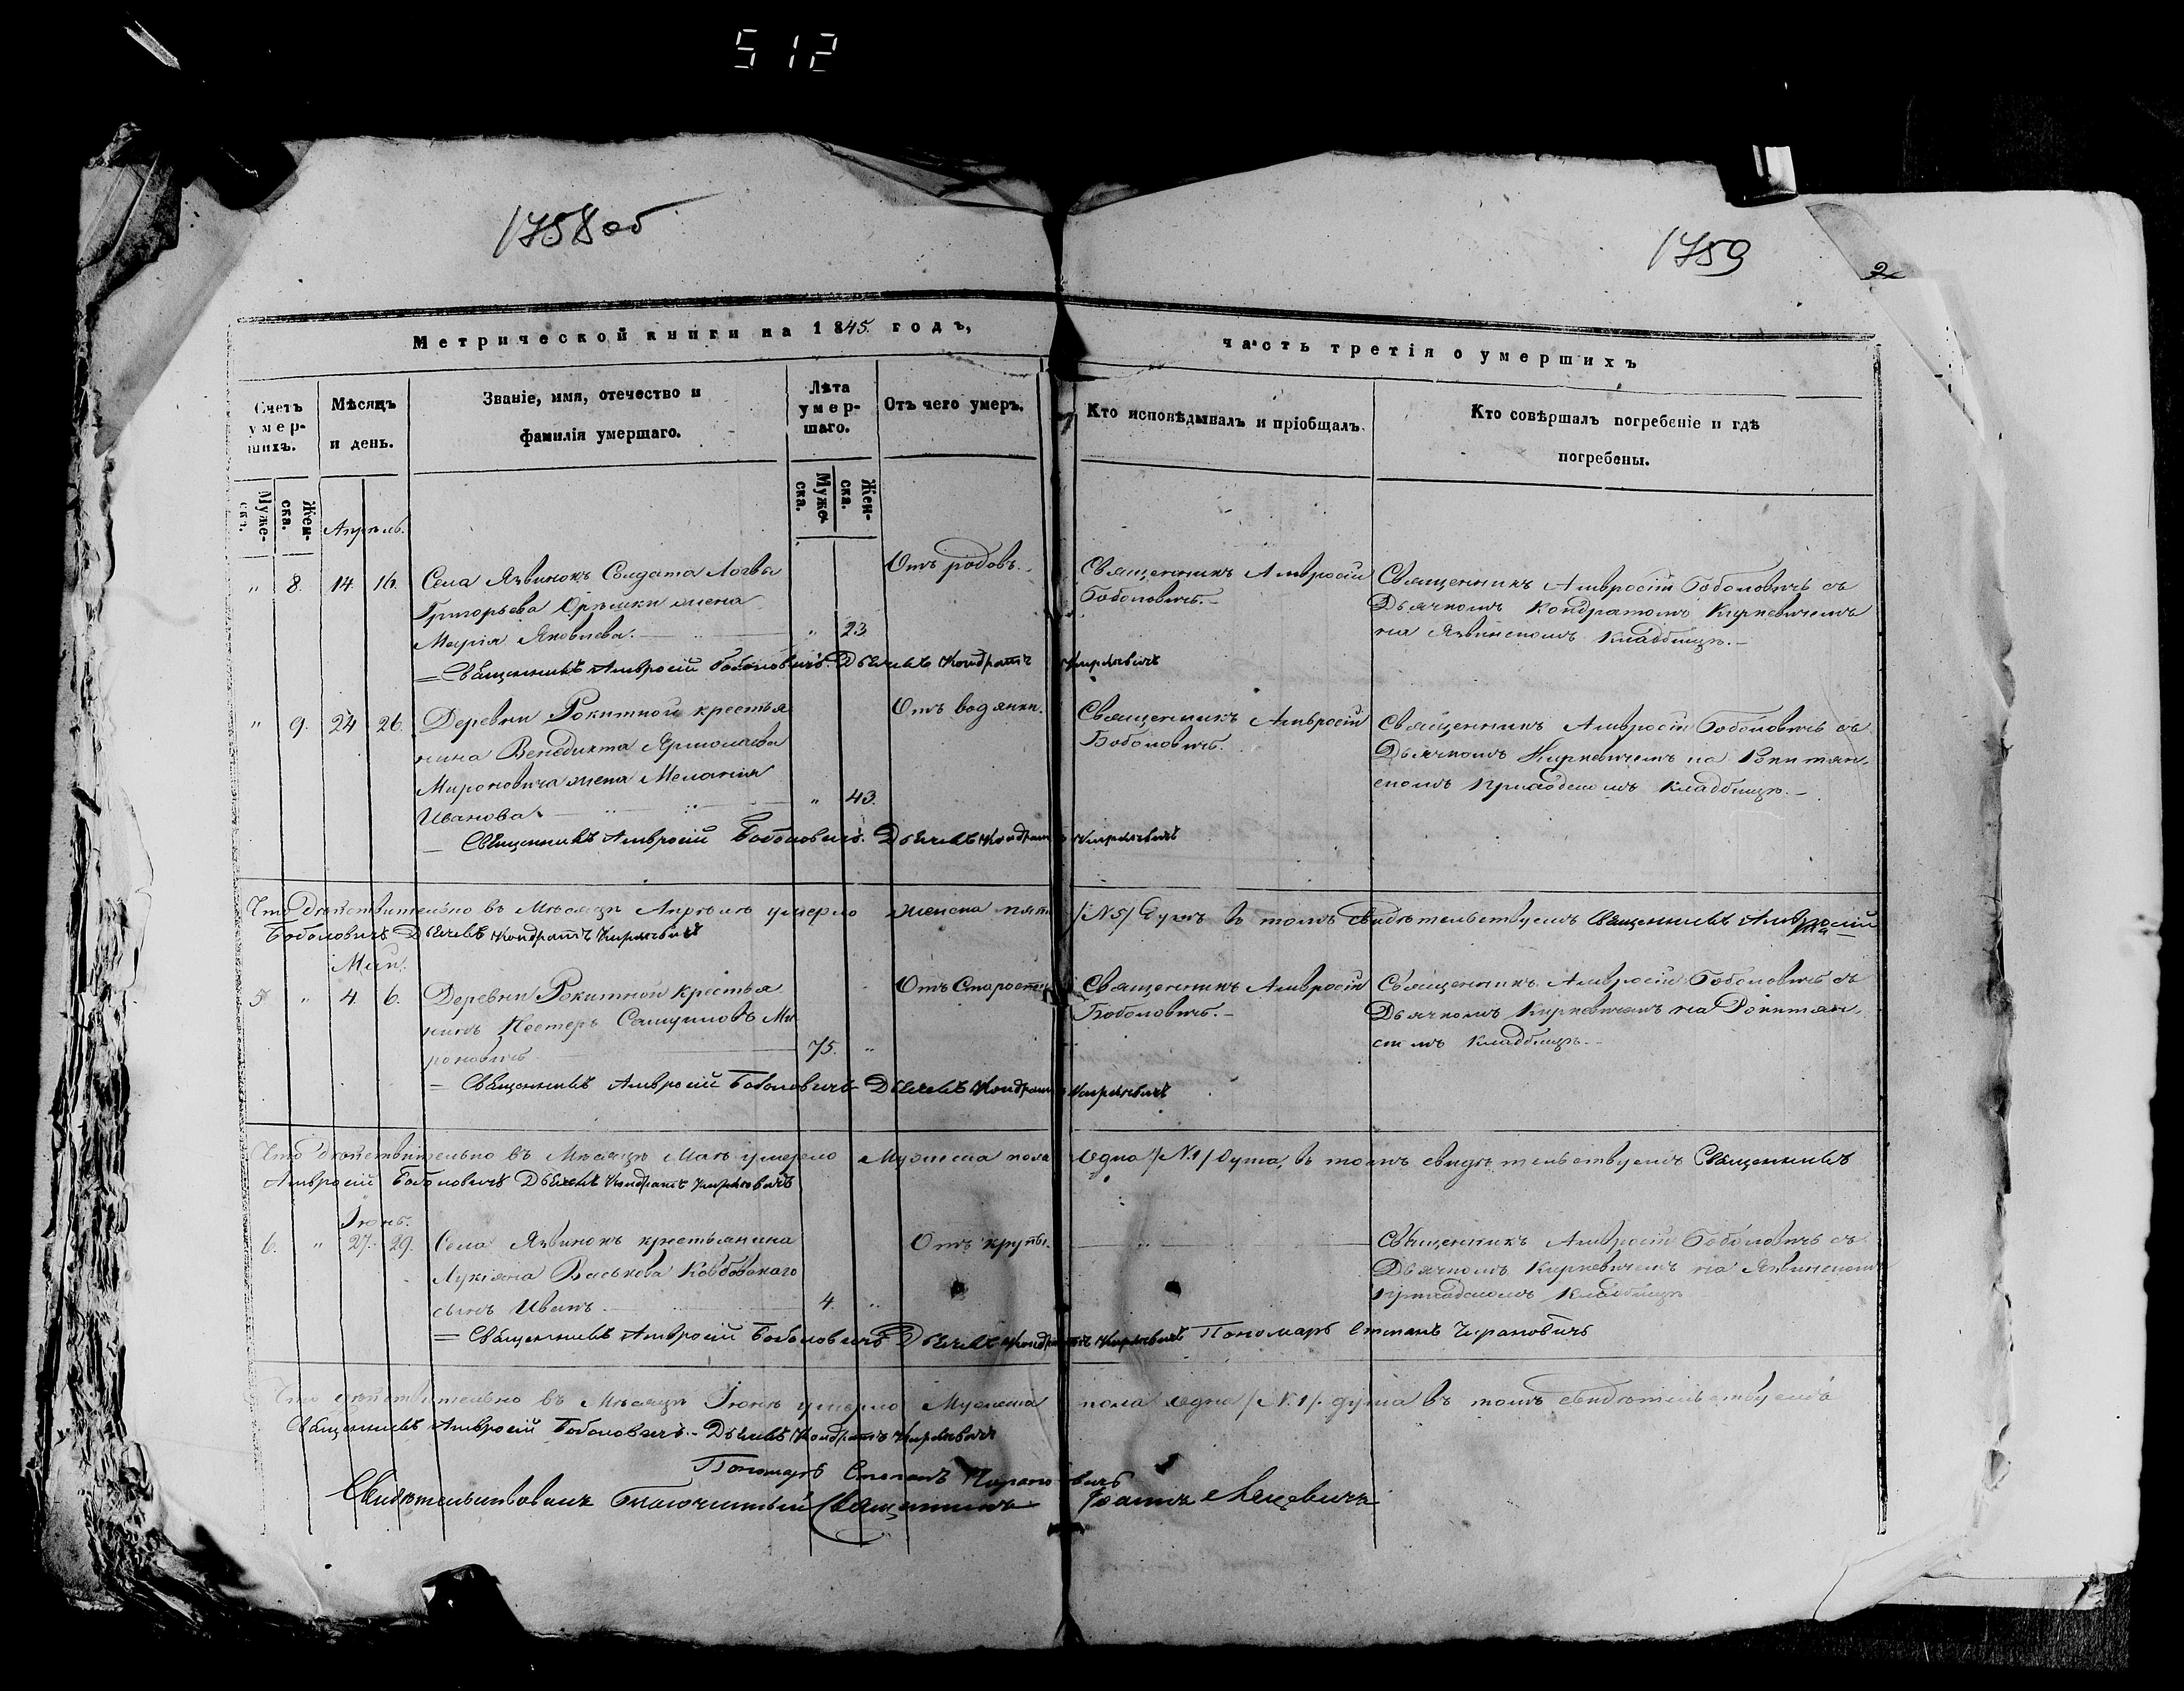 512
1758об
1759
2
Метрической книги на 1845 годъ,
часть третія о умершихъ
Счетъ умер-шихъ.
Мѣсяцъ и день.
Званіе, имя, отечество и фамилія умершаго.
Лѣта умер-шаго.
Отъ чего умеръ.
Кто исповѣдывалъ и пріобщалъ.
Кто совѣршалъ погребеніе и гдѣ погребены.
Муже-ска.
Жен-ска.
Муже-ска.
Жен-ска.
Апрѣль.
" 8. 14. 16. Села Язвинокъ Солдата Логвы
Григорьева Орѣшки жена
Марія Яковлева. " 23.
Отъ родовъ.
Священникъ Амвросій
Боболовичъ.
Священникъ Амвросій Боболовичъ съ
Дьячкомъ Кондратомъ Киркевичемъ
на Язвинскомъ кладбищѣ.
Священникъ Амвросій Боболовичъ. Дьячекъ Кондратъ Киркевичъ
" 9. 24 26. Деревни Рокитной крестья
нина Венедикта Ярмолаева
Мироновича жена Меланія
Иванова. " 43.
Отъ водянки.
Священникъ Амвросій
Боболовичъ.
Священникъ Амвросій Боболовичъ съ
Дьячкомъ Киркевичемъ на Рокитян-
скомъ приходскомъ кладбищѣ.
Священникъ Амвросій Боболовичъ. Дьячекъ Кондратъ Киркевичъ
Что дѣйствительно въ Мѣсяцѣ Апрѣлѣ умерло женска пять /№5/ душъ въ томъ свидѣтельствуемъ Священникъ Амвросій
Боболовичъ Дьячекъ Кондратъ Киркевичъ
Май.
5 " 4 6. Деревни Рокитной крестья
нинъ Нестеръ Самуиловъ Ми
роновичъ 75. "
Отъ Старости
Священникъ Амвросій
Боболовичъ.
Священникъ Амвросій Боболовичъ съ
Дьячкомъ Киркевичемъ на Рокитян-
скомъ кладбищѣ.
Священникъ Амвросій Боболовичъ Дьячекъ Кондратъ Киркевичъ
Что дѣйствительно въ Мѣсяцѣ Маѣ умерло Мужеска пола одна /№1/ душа, въ томъ свидѣтельствуемъ Священникъ
Амвросій Боболовичъ Дьячекъ Кондратъ Киркевичъ
Іюнь.
6. " 27. 29. Села Язвинокъ крестьянина
Лукіяна Васькова
сынъ Иванъ. 4. "
Отъ крупы.
Священникъ Амвросій Боболовичъ съ
Дьячкомъ Киркевичемъ на Язвинскомъ
приходскомъ кладбищѣ
Священникъ Амвросій Боболовичъ Дьячекъ Кондратъ Киркевичъ Пономарь Степанъ
Что дѣйствительно въ Мѣсяцѣ Іюнѣ умерло Мужеска пола одна /№1/ душа въ томъ свидѣтельствуемъ
Священникъ Амвросій Боболовичъ. Дьячекъ Кондратъ Киркевичъ
Пономарь Степанъ
Свидѣтельствовалъ Благочинный Священникъ Іоаннъ